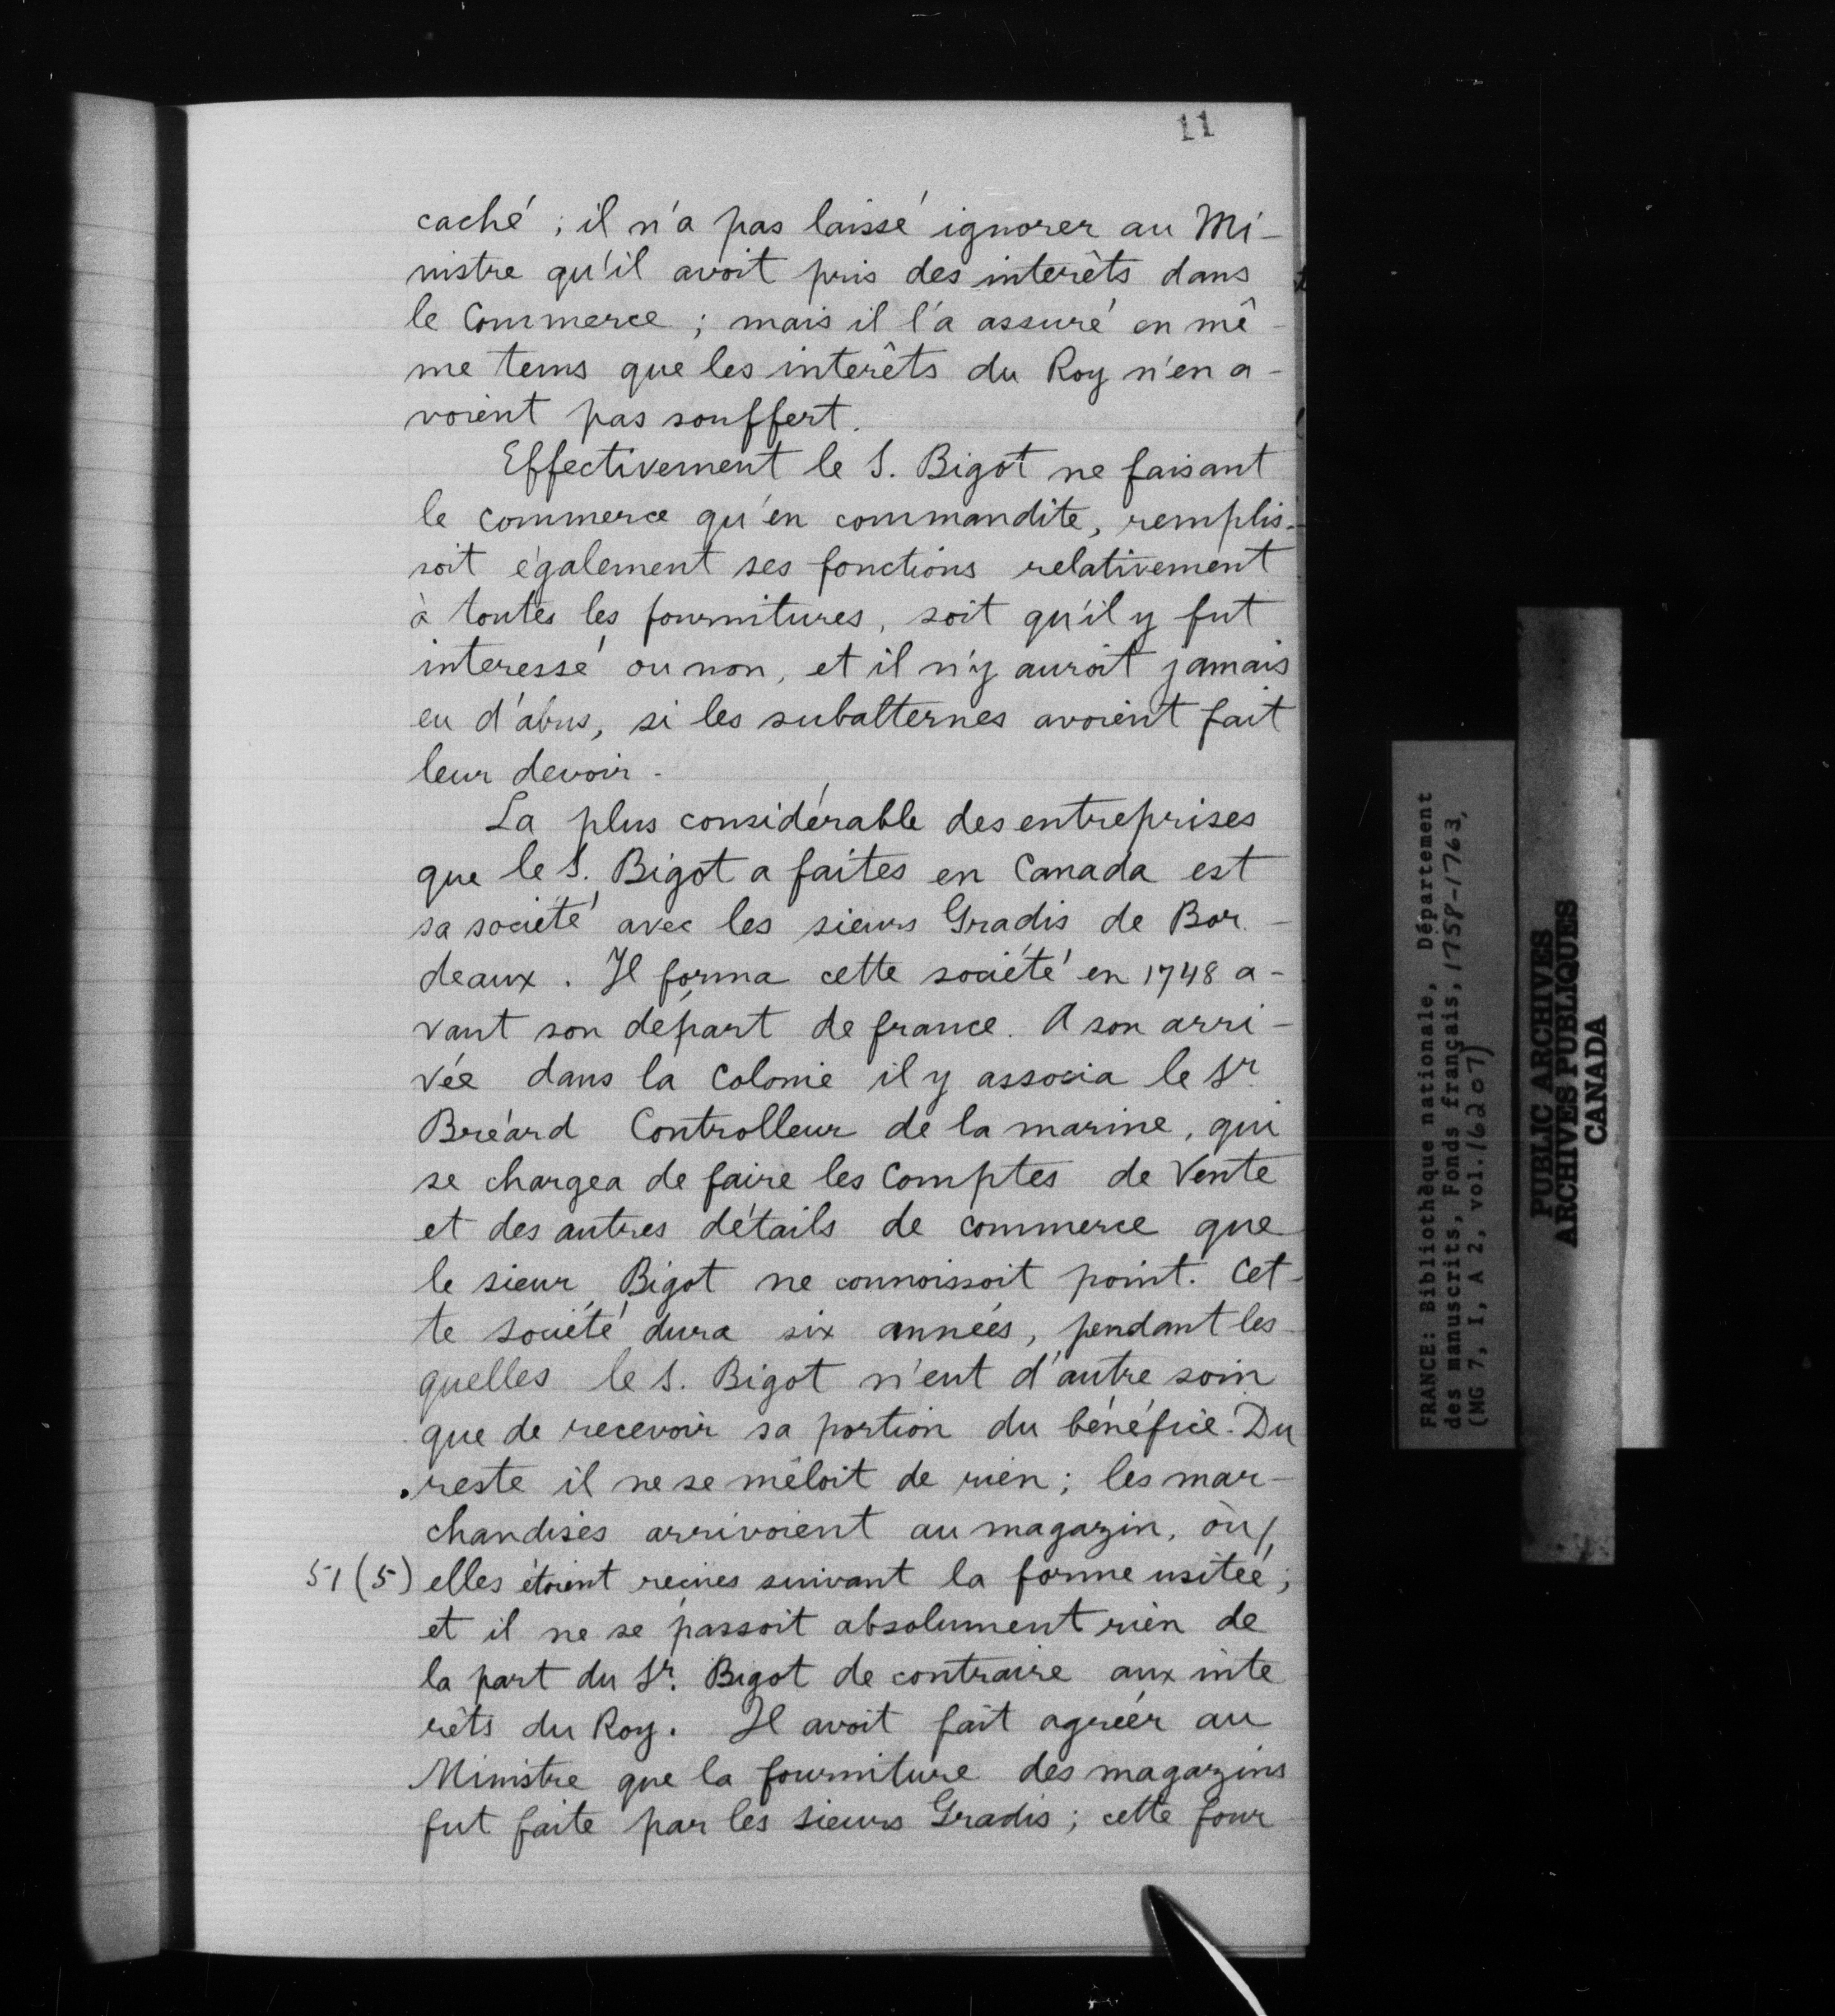 11
caché ; il n'a pas laissé ignorer au Mi-
nistre qu'il avoit pris des interêts dans
le Commerce ; mais il l'a assuré en mê-
me tems que les interêts du Roy n'en a-
voient pas souffert.
Effectivement le S. Bigot ne faisant
le commerce qu'en commandite, remplis-
soit également ses fonctions relativement
à toutes les fournitures, soit qu'il y fut
interessé ou non, et il n'y auroit jamais
eu d'abus, si les subalternes avoient fait
leur devoir.
La plus considérable des entreprises
que le S. Bigot a faites en Canada est
sa société avec les sieurs Gradis de Bor-
deaux. Il forma cette société en 1748 a-
vant son départ de france. A son arri-
vée dans la Colonie il y associa le Sr.
Bréard Controlleur de la marine, qui
se chargea de faire les Comptes de Vente
et des autres détails de commerce que
le sieur Bigot ne connoissoit point. Cet-
te société dura six années, pendant les-
quelles le S. Bigot n'eut d'autre soin
que de recevoir sa portion du bénéfice. Du
reste il ne se mêloit de rien ; les mar-
chandises arrivoient au magazin, où /
51 (5) elles étoient reçues suivant la forme usitée ;
et il ne se passoit absolument rien de
la part du Sr. Bigot de contraire aux inte
rêts du Roy. Il avoit fait agréer au
Ministre que la fourniture des magazins
fut faite par les sieurs Gradis ; cette four
FRANCE: Bibliothèque nationale, Département
des manuscrits, Fonds français, 1758-1763,
(MG 7, I, A 2, vol. 16207)
PUBLIC ARCHIVES
ARCHIVES PUBLIQUES
CANADA